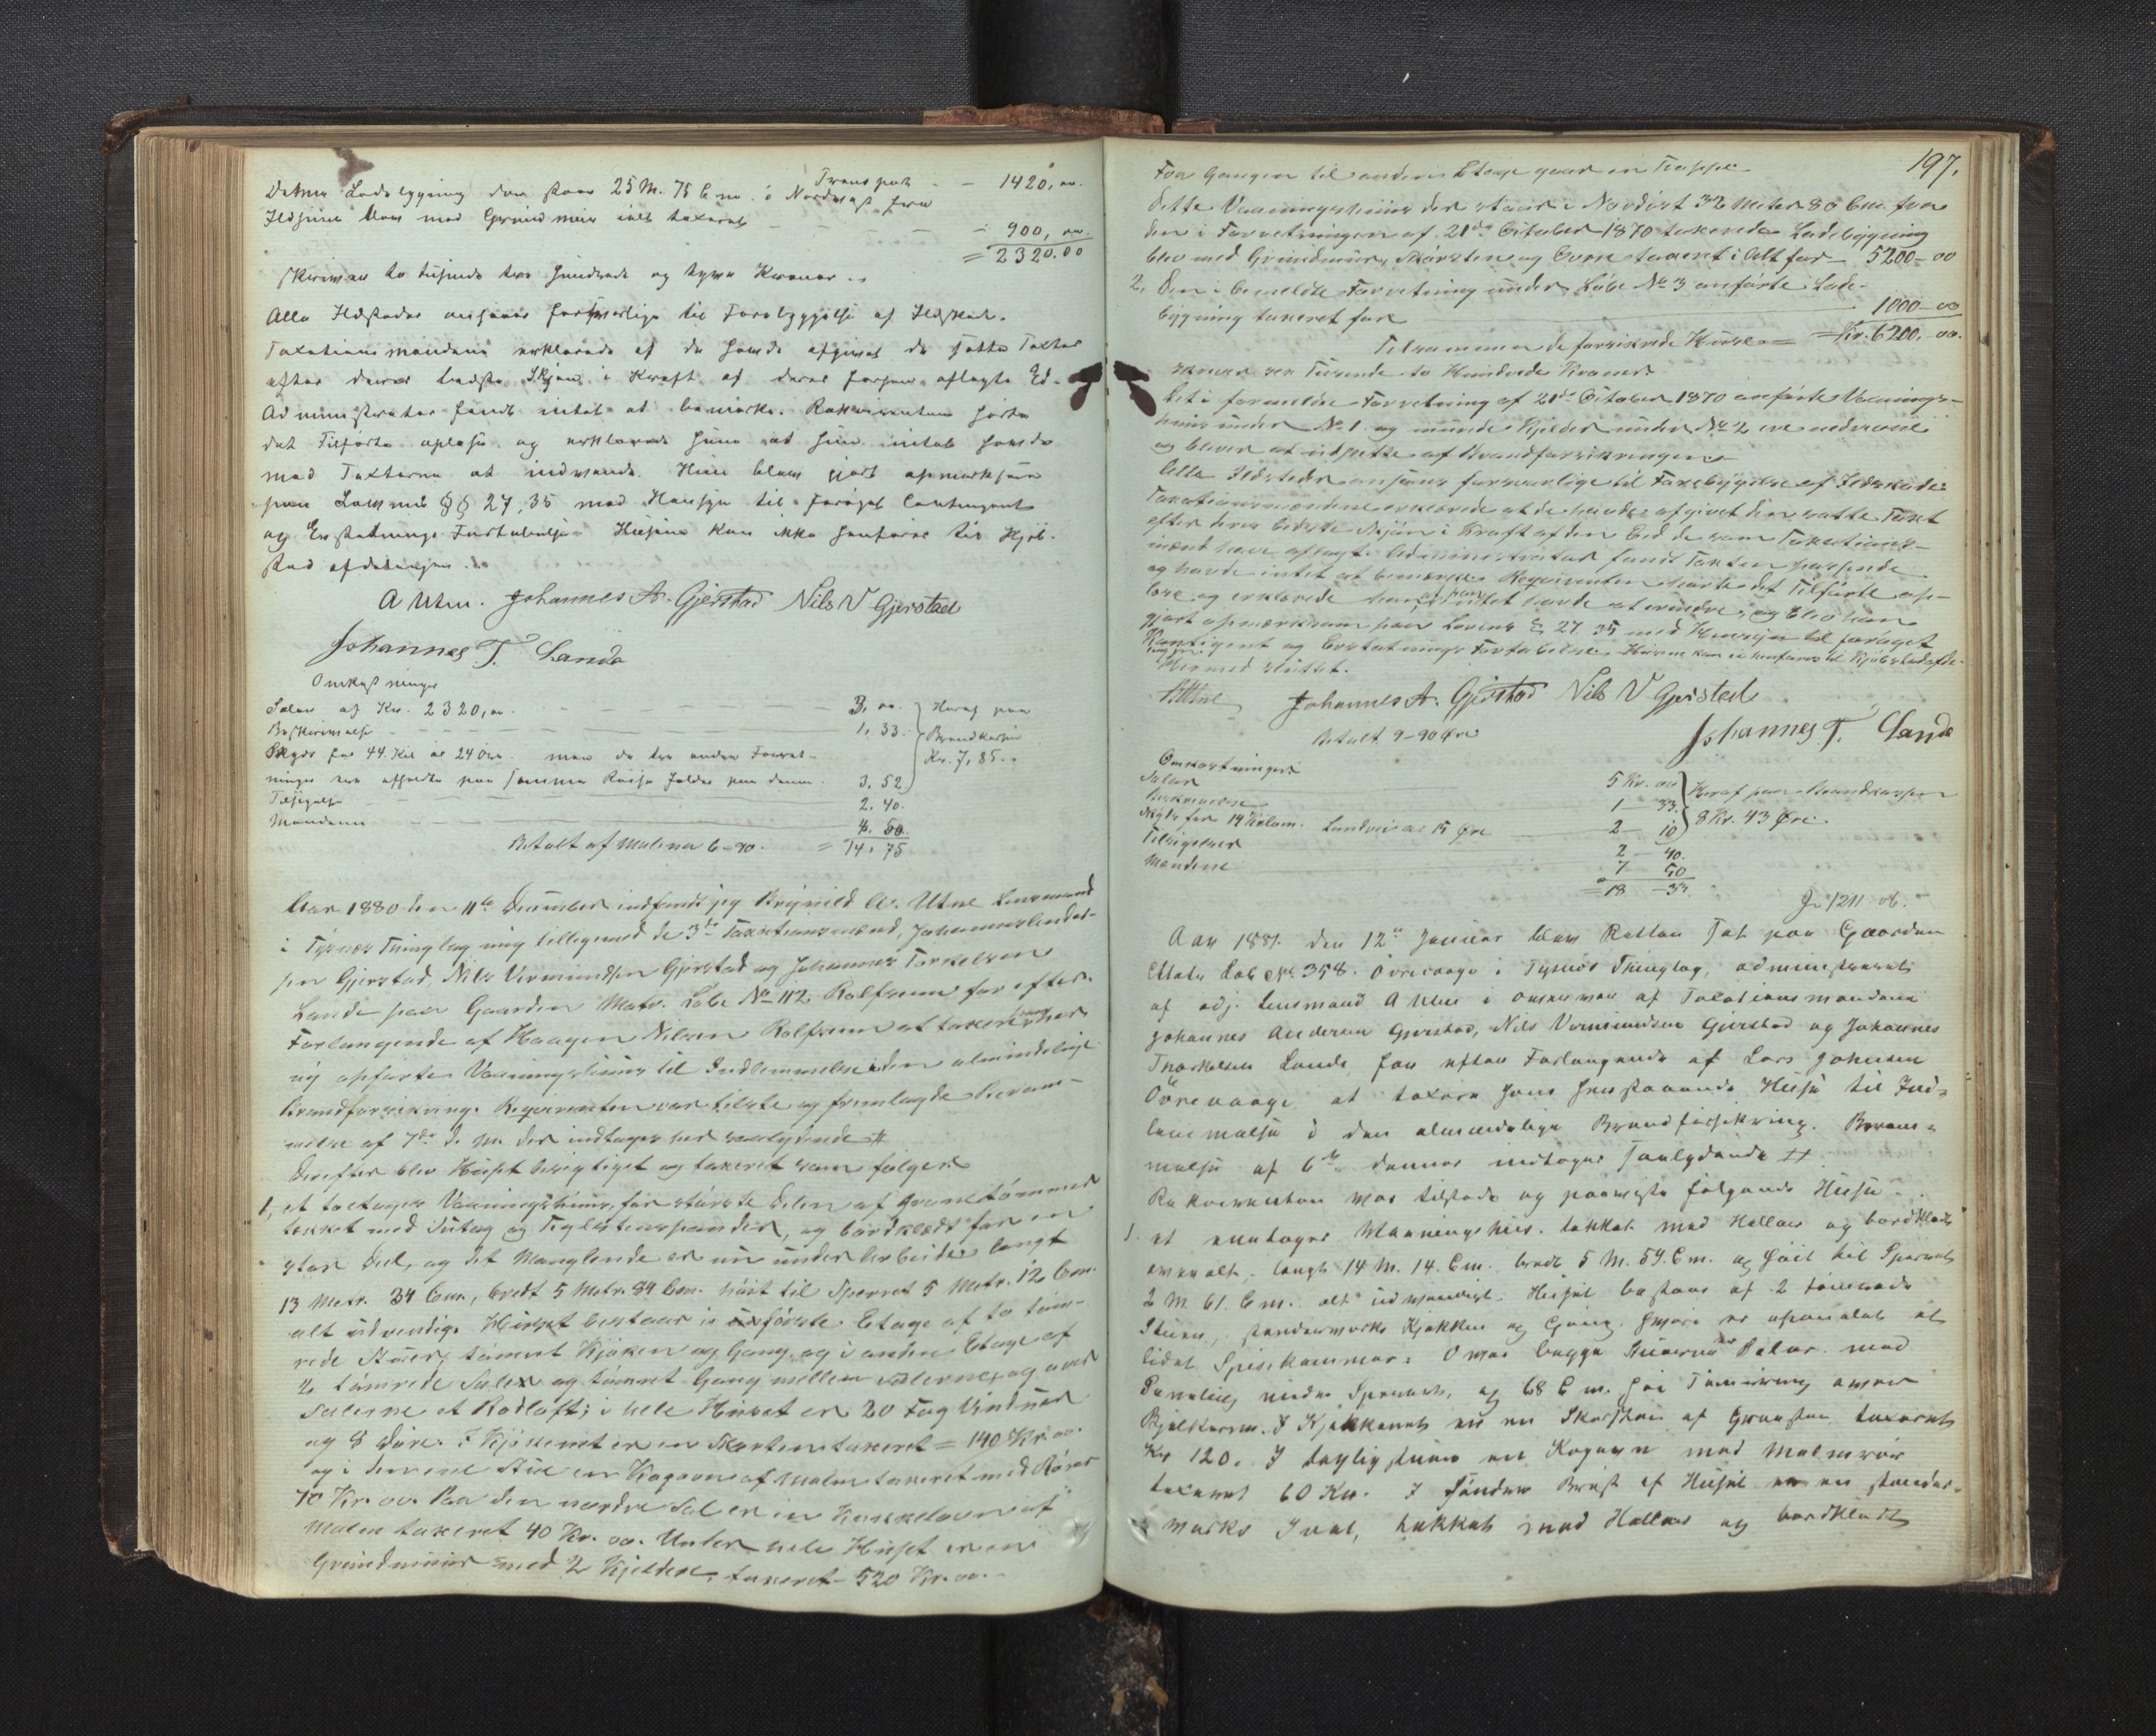 Transport - - 1420, oo.
Denne Ladebygning der staar 25 M. 75 Cm. i Nordvest fra
Ildhuset blev med Grundmur ialt taxeret - - - 900, oo.
= 2320.00
skriver to tusinde tre hundrede og tyve Kroner.
Alle Ildsteder ansees forsvarlige til Forebyggelse af Ildskade.
Taxationsmændene erklærede at de havde afgivet de satte Taxter
efter deres bedste Skjøn i Kraft af deres forhen aflagte Ed.
Administrator fandt intet at bemærke. Rekvirenten hørte
det Tilførte oplæse og erklærede hun at hun intet havde
mod Taxterne at indvende. Hun blev gjort opmærksom
paa Lovens §§ 27, 35 med Hensyn til forøget Contingent
og Erstatnings Fortabelse. Husene kan ikke henføres til Kjøb-
stad afdelingen.
A Utne. Johannes A. Gjerstad Nils V Gjerstad
Johannes T. Lande
Omkostninger
Salær af Kr. 2320, oo. - - - 3. oo. Heraf paa
Beskrivelse - - - 1. 33. Brandkassen
Skyds for 44. Kil à 24 Øre. men da tre andre Forret- Kr. 7,85.
ninger er afholdte paa samme Reise falder paa denne. 3. 52
Tilsigelse - - - 2. 40.
Mændene - - - 4. 50.
Betalt af Malena 6-90. = 14. 75
Aar 1880 den 11te December indfandt jeg Brynild A. Utne Lensmand
i Tysnes Thinglag mig tilligemed de 3de Taxationsmænd, Johannes Anders-
sen Gjerstad, Nils Vermundsen Gjerstad og Johannes Torkelsen
Lande paa Gaarden Matr. Løbe No 112 Rolfsnes for efter
Forlangende af Haagen Nilsen Rolfsnes at taxere hans her
ny opførte Vaaningshuus til Indlemmelse i den almindelige
Brandforsikring. Reqvirenten var tilstede og fremlagde Beram-
melse af 7de d. M. der indtages her saalydende #
Derefter blev Huset besigtiget og taxeret som følger:
1, et toetages Vaaningshuus, for største Delen af Grantømmer
tækket med Sutag og Teglsteenspander, og bordklædt for en
stor Deel, og det Manglende er nu under Arbeide, langt
13 Metr. 34 Cm., bredt 5 Metr. 84 Cm. høit til Sperret 5 Metr. 12 Cm.
alt udvendig. Huset bestaar i første Etage af to tøm-
rede Stuer, tømret Kjøken og Gang og i anden Etage af
2 tømrede Sale og tømret Gang mellem Salerne, og over
Salerne et Rodloft; i hele Huset er 20 Fag Vinduer
og 8 Døre. I Kjøkenet er en Skorsten taxeret = 140 Kr. oo.
og i den ene Stue en Kogovn af Malm taxeret med Rører
70 Kr. oo. Paa den nordre Sal er en Kakkelovn af
Malm taxeret 40 Kr. oo. Under hele Huset er en
Grundmuur med 2 Kjeldere, taxeret - 520 Kr. oo.
197.
Fra Gangen til anden Etage gaar en Trappe.
Dette Vaaningshuus der staar i Nordost 32 Meter 80 Cm. fra
den i Forretningen af 21de October 1870 taxerede Ladebygning
blev med Grundmuur, Skorsten og Ovne taxeret i Alt for 5200 - oo
2, Den i bemeldte Forretning under Løbe No 3 anførte Lade-
bygning taxeret for 1000 - oo
Tilsammen de forsikrede Huse = Kr. 6200, oo.
skriver sex Tusende to Hundrede Kroner.
Det i formeldte Forretning af 21de October 1870 anførte Vaanings-
huus under No 1. og murede Kjelder under No 2 ere nedrevne
og bliver at udslette af Brandforsikringen.
Alle Ildsteder ansees forsvarlige til Forebygelse af Ildskade.
Taxationsmændene erklærede at de havde afgivet den satte Taxt
efter deres bedste Skjøn i Kraft af den Eed de som Taxations-
mænd have aflagt. Administrator fandt Taxten passende
og havde intet at bemærke. Reqvirenten hørte det Tilførte op-
læse og erklærede han at han intet havde at erindre; og blev han
gjort opmærksom paa Lovens § 27 35 med Hensyn til forøget
Kontigent og Erstatnings Fortabelse. Husene kan ei henføres til Kjøbstadafde-
lingen.
Hermed sluttet.
A Utne Johannes A. Gjerstad Nils V Gjerstad
Betalt 9-90 Øre Johannes T. Lande
Omkostninger:
Salær 5 Kr. oo Heraf paa Brandkassen
Beskrivelse 1 - 33. 8 Kr. 43 Øre.
Skyds for 14 Kilom. Landvei à 15 Øre 2 - 10
Tilsigelser 2 - 40.
Mændene 7 50
= 18 - 33.
J. 1211 ob.
Aar 1881. den 12te Januar blev Retten sat paa Gaarden
Matr Løb No 358. Øvrevaage i Tysnes Thinglag, administreret
af adj. Lensmand A Utne i Overvær af Taxationsmændene
Johannes Andersen Gjerstad, Nils Vermundsen Gjerstad og Johannes
Thorkelsen Lande for efter Forlangende af Lars Johnsen
Øvrevaage at taxere hans henstaaende Huse til Ind-
lemmelse i den almindelige Brandforsikring. Beram-
melse af 6te dennes indtages saalydende #
Rekvirenten var tilstede og paaviste følgende Huse.
1. et eenetages Vaaningshus. tækket med Heller og bordklædt
overalt. langt 14 M. 14. Cm. bredt 5 M. 59. Cm. og høit til Sperret
2 M 61. Cm. alt udvendigt. Huset bestaar af 2 tømrede
Stuer, standerværks Kjøkken og Gang, hvori er afpanelet et
lidet Spisekammer. Over begge Stuerne er Saler med
Paneling under Sperret, og 68 Cm. høi Tømring over
Bjelkerne. I Kjøkkenet er en Skorsten af Graasten taxeret
Kr 120. I Dagligstuen en Kogovn med Malmrør
taxeret 60 Kr. I søndre Brøst af Huset er en stander-
værks Sval, tækket med Heller og bordklædt